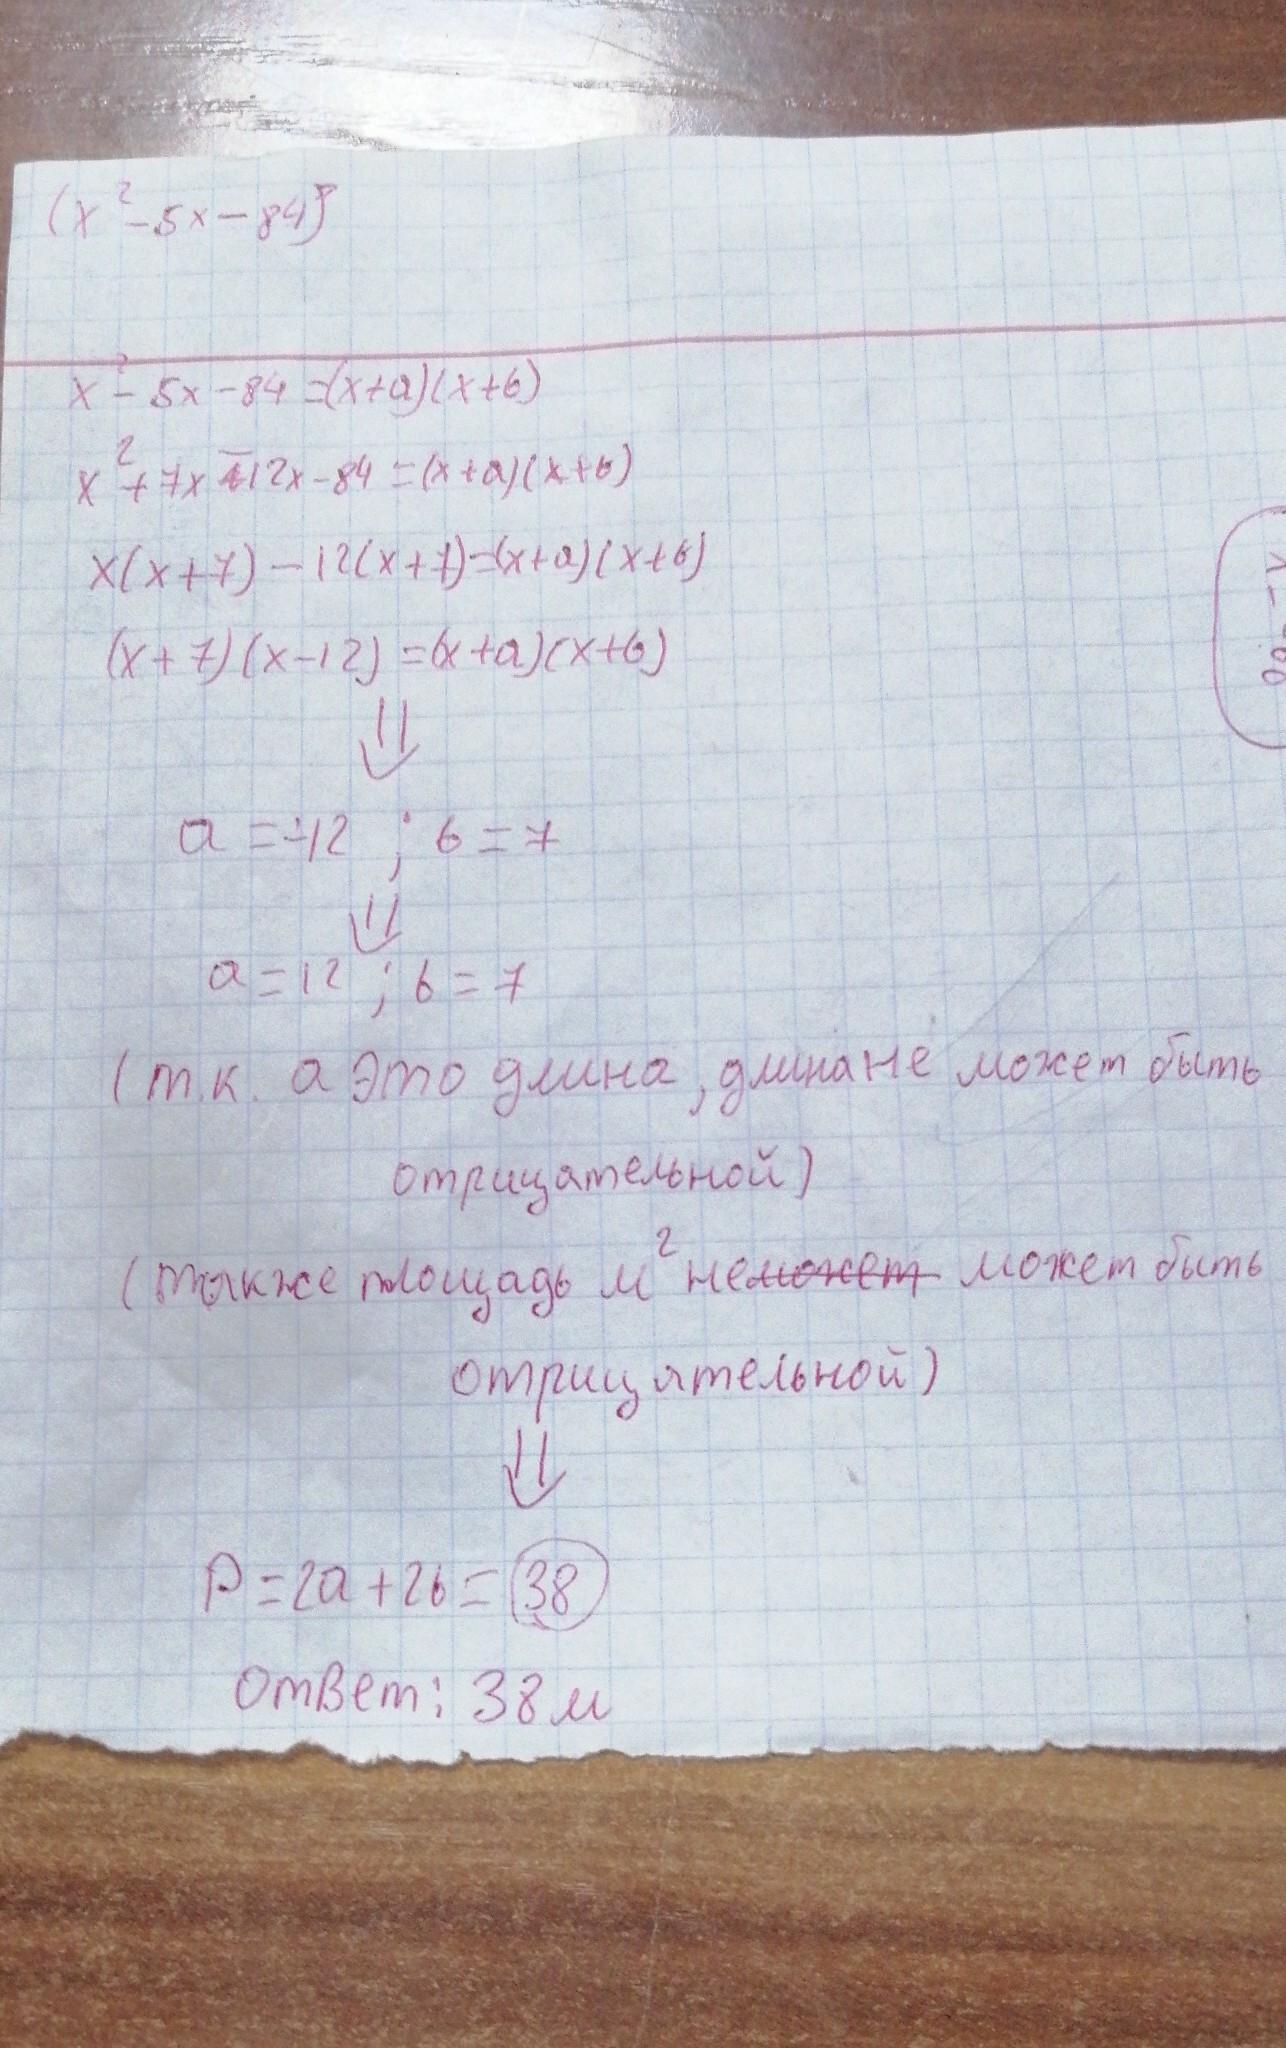 (x² - 5x - 84)
x² - 5x - 84 = (x+a)(x+b)
x² + 7x - 12x - 84 = (x+a)(x+b)
x(x+7) - 12(x+7) = (x+a)(x+b)
(x+7)(x-12) = (x+a)(x+b)
⇓
a = -12 ; b = 7
⇓
a = 12 ; b = 7
(т.к. a это длина, длина не может быть
отрицательной)
(также площадь м² не может быть
отрицятельной)
⇓
P = 2a + 2b = 38
Ответ: 38м